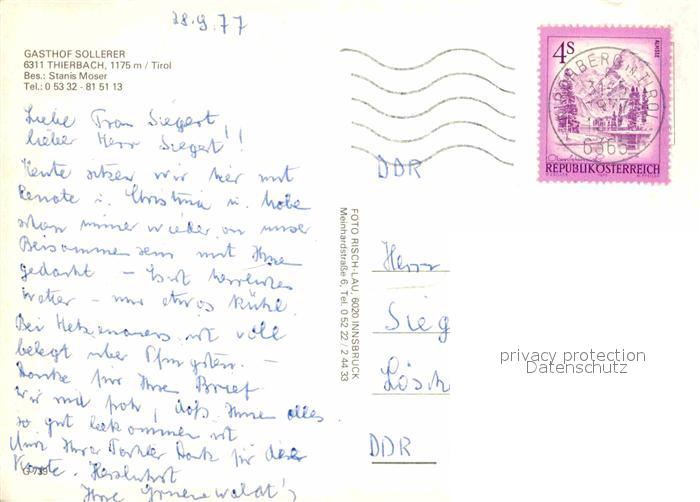 28.9.77
GASTHOF SOLLERER
6311 THIERBACH, 1175 m / Tirol
Bes.: Stanis Moser
Tel.: 0 53 32 - 81 51 13
Liebe Frau Siegert!
lieber Herr Siegert!!
Heute sitzen wir hier mit
Renate u. Christina u. habe
schon immer wieder an unser
Beisammensein mit Ihnen
gedacht - Es ist herrliches
Wetter - nur etwas kühl.
Bei ist voll
belegt über Pfingsten. -
Danke für Ihre Brief
Wir sind froh, daß Ihnen alles
so gut bekommen ist
Ihrer Tochter Dank für die
Karte. Herzlichst
Ihre
G 739
FOTO RISCH-LAU, 6020 INNSBRUCK
Meinhardstraße 6, Tel. 0 52 22 / 2 44 33
4S
ALMSEE
REPUBLIK ÖSTERREICH
IN TIROL
6365
DDR
Herr
Sieg
Lösch
DDR
privacy protection
Datenschutz